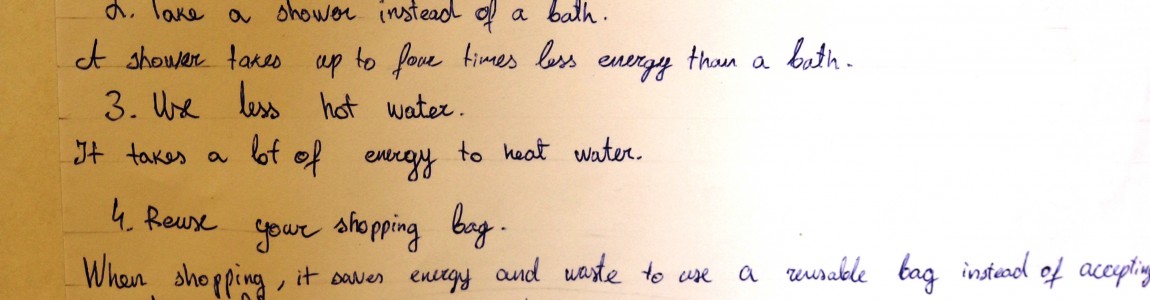 2. Take a shower instead of a bath.
A shower takes up to four times less energy than a bath.
3. Use less hot water.
It takes a lot of energy to heat water.
4. Reuse your shopping bag.
When shopping, it saves energy and waste to use a reusable bag instead of accepting